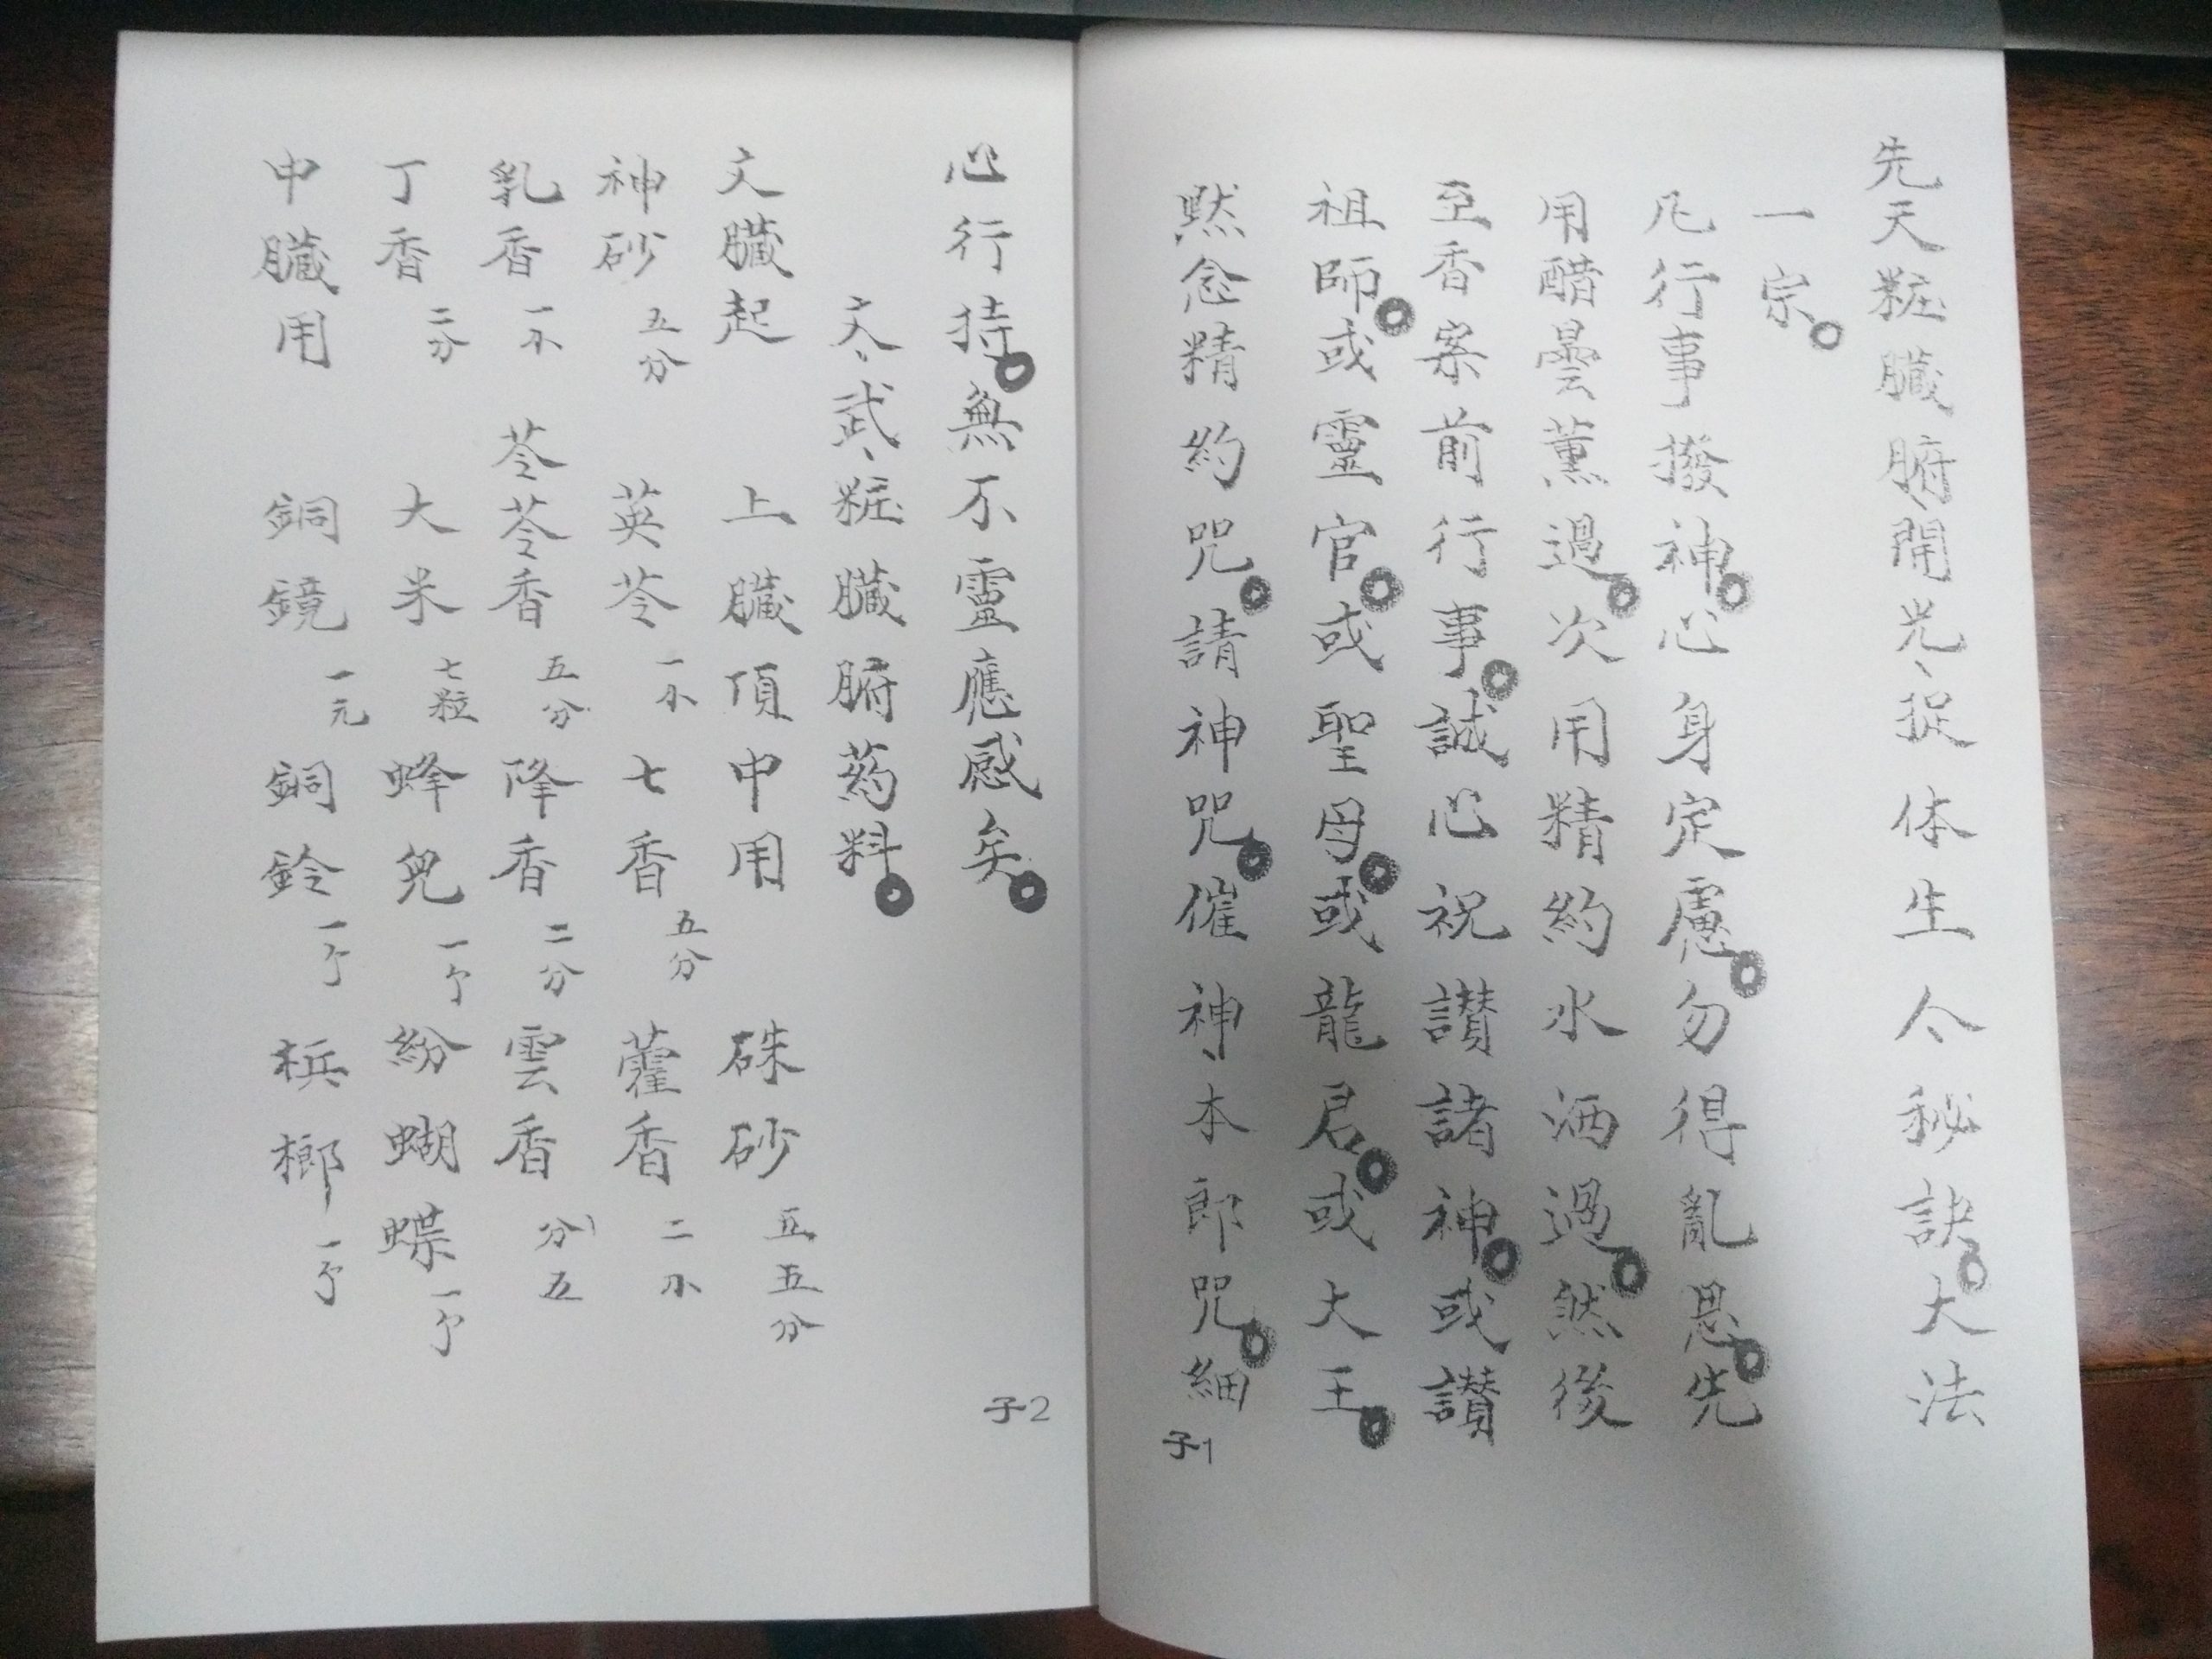 先天粧臟腑、開光、捉体生人秘訣。大法
一宗。
凡行事撥神。心身定慮。勿得亂思。先
用醋曇薰過。次用精約水洒過。然後
至香案前行事。誠心祝讃諸神。或讃
祖師。或靈官。或聖母。或龍君。或大王。
黙念精約咒。請神咒。催神、本郎咒。細
子1
心行持。無不靈應感矣。
文、武、粧臟腑葯料。
文臟起 上臟頂中用 硃砂 五五分
神砂 五分 英苓 一小 七香 五分 藿香 二小
乳香 一小 苓苓香 五分 降香 二分 雲香 分五
丁香 二分 大米 七粒 蜂兒 一个 紛蝴蝶 一个
中臟用 銅鏡 一元 銅鈴 一个 梹榔 一个
子2